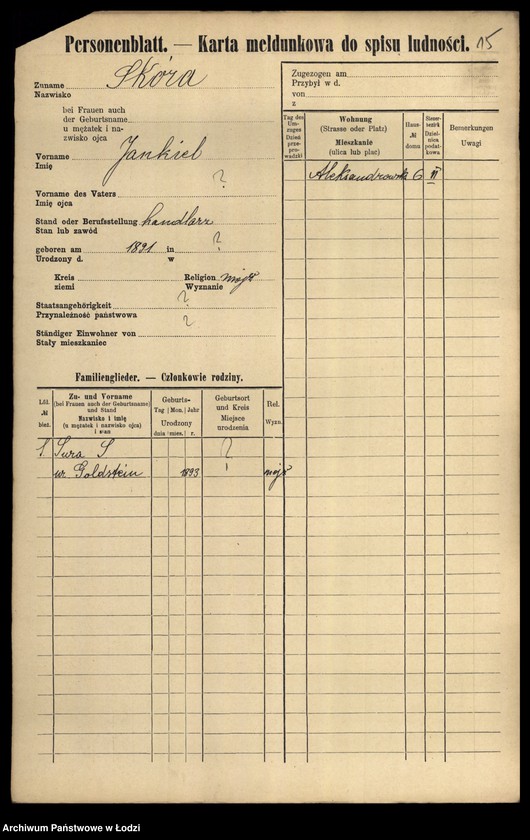 Personenblatt. — Karta meldunkowa do spisu ludności. 15
Zuname Skóra
Nazwisko
bei Frauen auch
der Geburtsname
u mężatek i na-
zwisko ojca
Vorname Jankiel
Imię
?
Vorname des Vaters
Imię ojca
Stand oder Berufsstellung handlarz
Stan lub zawód
geboren am 1891 in ?
Urodzony d. w
Kreis Religion mojż
ziemi Wyznanie
Staatsangehörigkeit ?
Przynależność państwowa ?
Ständiger Einwohner von
Stały mieszkaniec
Familienglieder. — Członkowie rodziny.
Lfd.
№
bież.
Zu- und Vorname
(bei Frauen auch der Geburtsname)
und Stand
Nazwisko i imię
(u mężatek i nazwisko ojca)
i stan
Geburts-
Tag Mon. Jahr
Urodzony
dnia mies. r.
Geburtsort
und Kreis
Miejsce
urodzenia
Rel.
Wyzn.
1. Sura S ?
ur Goldstein 1893 mojż
Zugezogen am
Przybył w d.
von
z
Tag des
Um-
zuges
Dzień
prze-
prowadzki
Wohnung
(Strasse oder Platz)
Mieszkanie
(ulica lub plac)
Haus-
№
domu
Steuer-
bezirk
Dziel-
nica
podat-
kowa
Bemerkungen
Uwagi
Aleksandrowska 6 II
Archiwum Państwowe w Łodzi